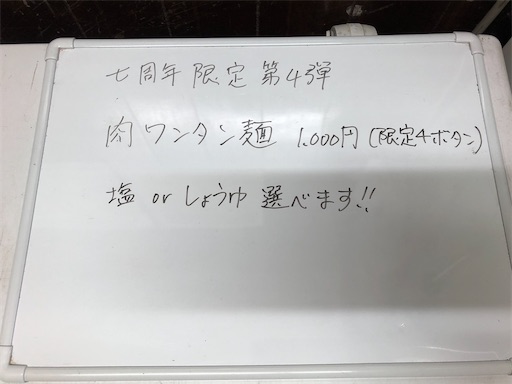 七周年限定第4弾
肉ワンタン麺 1.000円(限定4ボタン)
塩 or しょうゆ 選べます!!